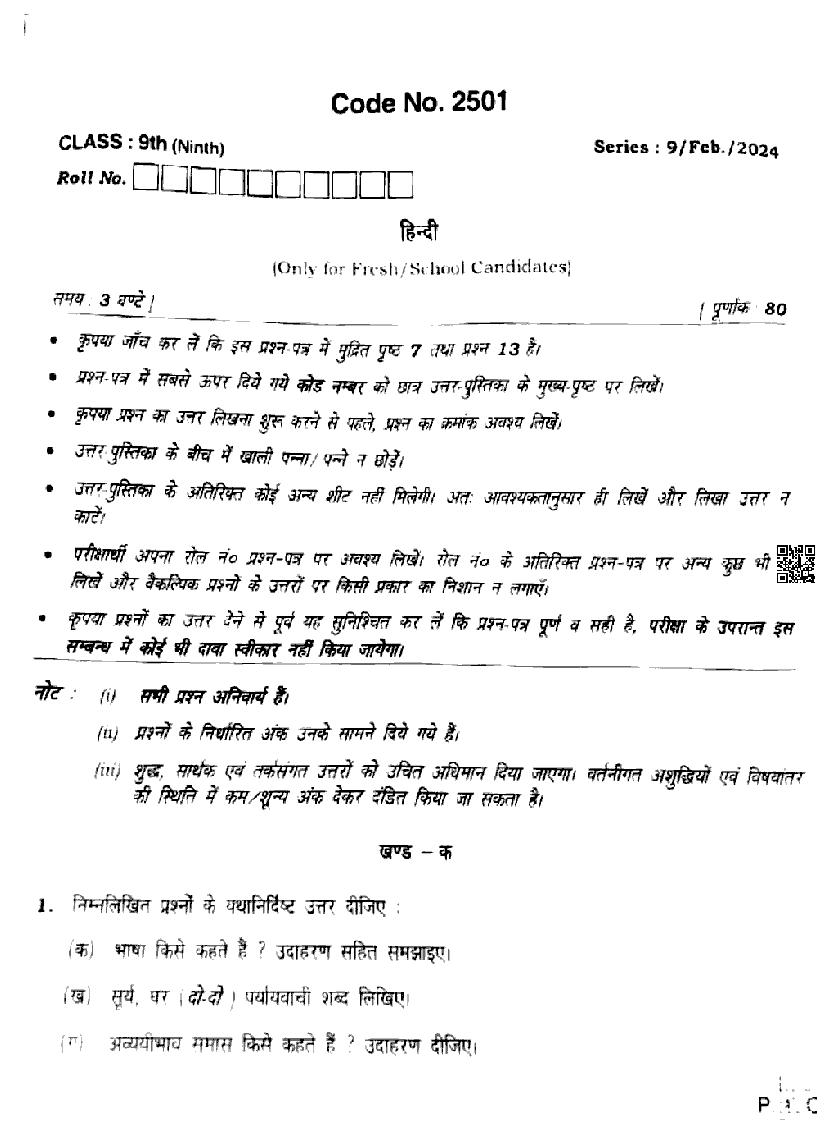 Code No. 2501
CLASS : 9th (Ninth)
Series : 9/Feb./2024
Roll No.
हिन्दी
(Only for Fresh/School Candidates)
समय : 3 घण्टे ]
[ पूर्णांक : 80
• कृपया जाँच कर लें कि इस प्रश्न-पत्र में मुद्रित पृष्ट 7 तथा प्रश्न 13 है।
• प्रश्न-पत्र में सबसे ऊपर दिये गये कोड नम्बर को छात्र उत्तर-पुस्तिका के मुख्य-पृष्ट पर लिखें।
• कृपया प्रश्न का उत्तर लिखना शुरू करने से पहले, प्रश्न का क्रमांक अवश्य लिखें।
• उत्तर-पुस्तिका के बीच में खाली पन्ना/ पन्ने न छोड़ें।
• उत्तर-पुस्तिका के अतिरिक्त कोई अन्य शीट नहीं मिलेगी। अतः आवश्यकतानुसार ही लिखें और लिखा उत्तर न
काटें।
• परीक्षार्थी अपना रोल नं० प्रश्न-पत्र पर अवश्य लिखें। रोल नं० के अतिरिक्त प्रश्न-पत्र पर अन्य कुछ भी
लिखें और वैकल्पिक प्रश्नों के उत्तरों पर किसी प्रकार का निशान न लगाएँ।
• कृपया प्रश्नों का उत्तर देने से पूर्व यह सुनिश्चित कर लें कि प्रश्न-पत्र पूर्ण व सही है, परीक्षा के उपरान्त इस
सम्बन्ध में कोई भी दावा स्वीकार नहीं किया जायेगा।
नोट : (i) सभी प्रश्न अनिवार्य हैं।
(ii) प्रश्नों के निर्धारित अंक उनके सामने दिये गये हैं।
(iii) शुद्ध, सार्थक एवं तर्कसंगत उत्तरों को उचित अधिमान दिया जाएगा। वर्तनीगत अशुद्धियों एवं विषयांतर
की स्थिति में कम/शून्य अंक देकर दंडित किया जा सकता है।
खण्ड – क
1. निम्नलिखित प्रश्नों के यथानिर्दिष्ट उत्तर दीजिए :
(क) भाषा किसे कहते हैं ? उदाहरण सहित समझाइए।
(ख) सूर्य, घर (दो-दो) पर्यायवाची शब्द लिखिए।
(ग) अव्ययीभाव समास किसे कहते हैं ? उदाहरण दीजिए।